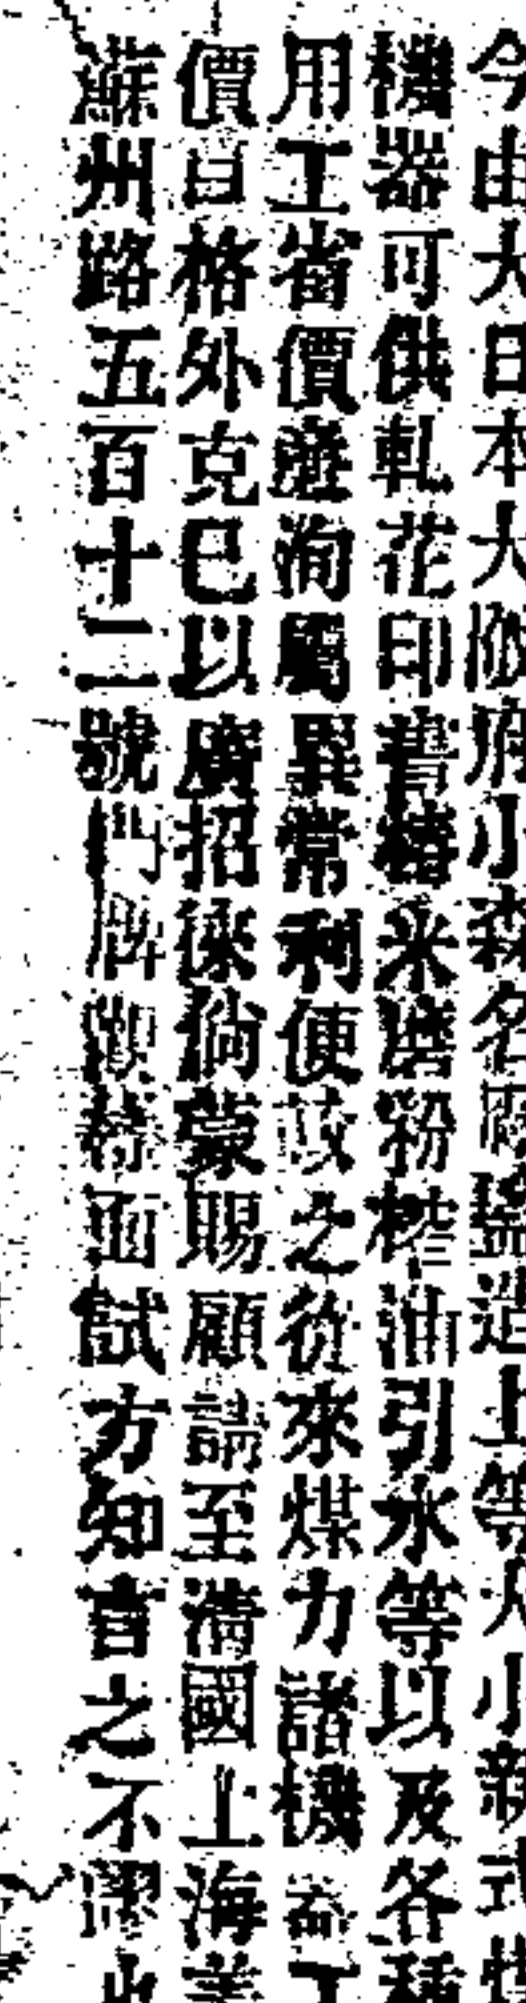 今由大日本大阪府小森名廠監造上等大小新式煤
機器可供軋花印書樁米磨粉榨油引水等以及各種
用工省價廉洵屬異常利便較之從來煤力諸機器工
價目格外克己以廣招徠倘蒙賜顧請至清國上海美
蘇州路五百十二號門牌駕臨面試方知言之不謬